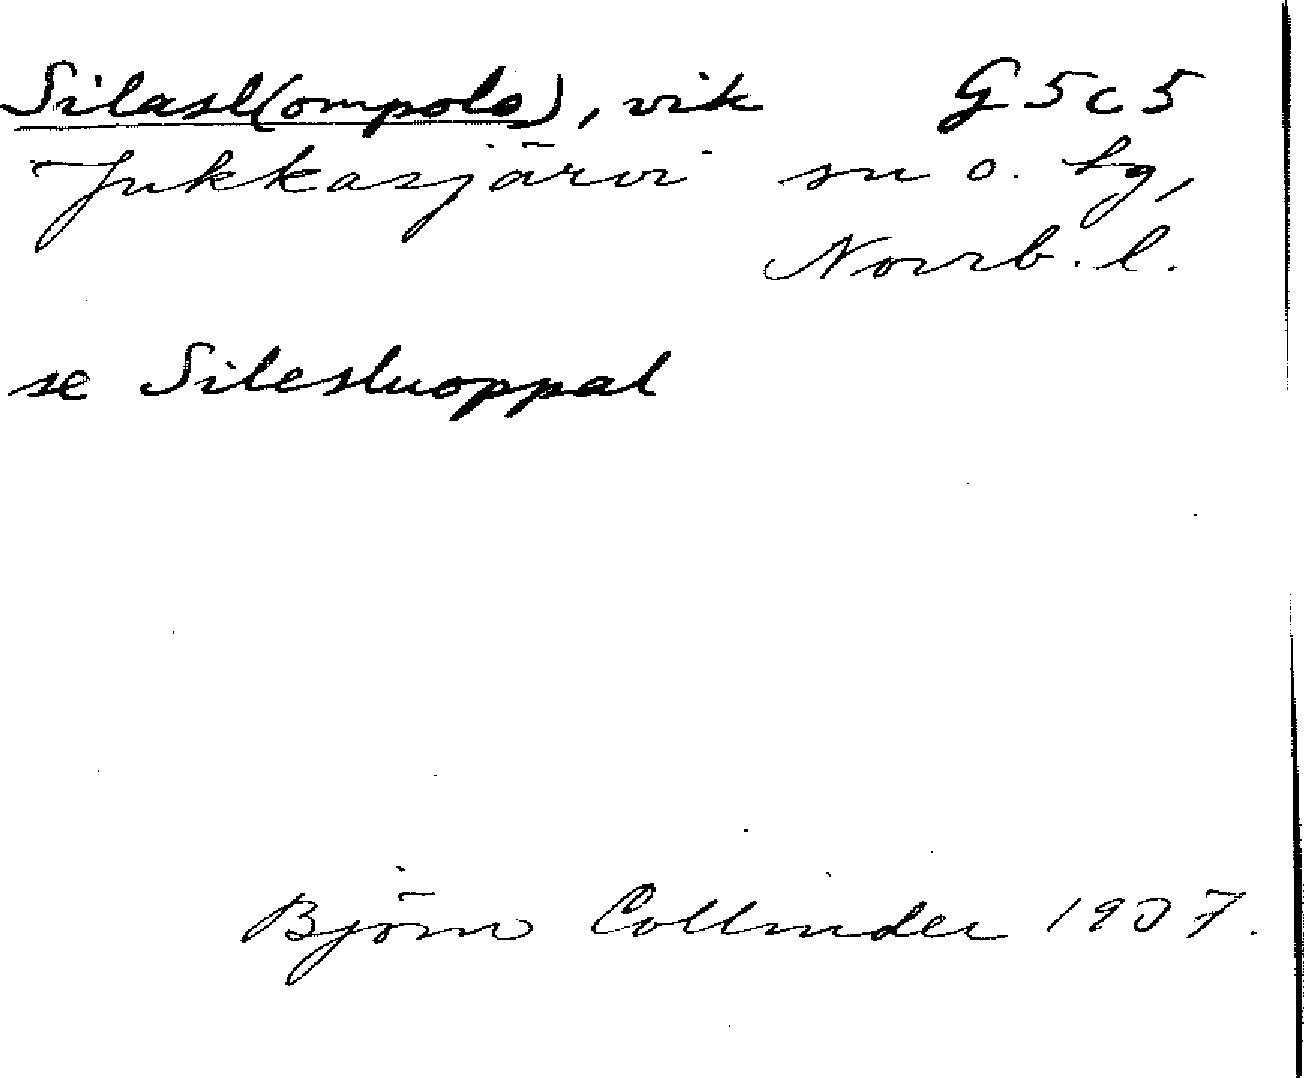 Silasl(ompolo), vik G 5 c 5
Jukkasjärvi sn o. tg,
Norrb. l.
se Silesluoppal
Björn Collinder 1907.